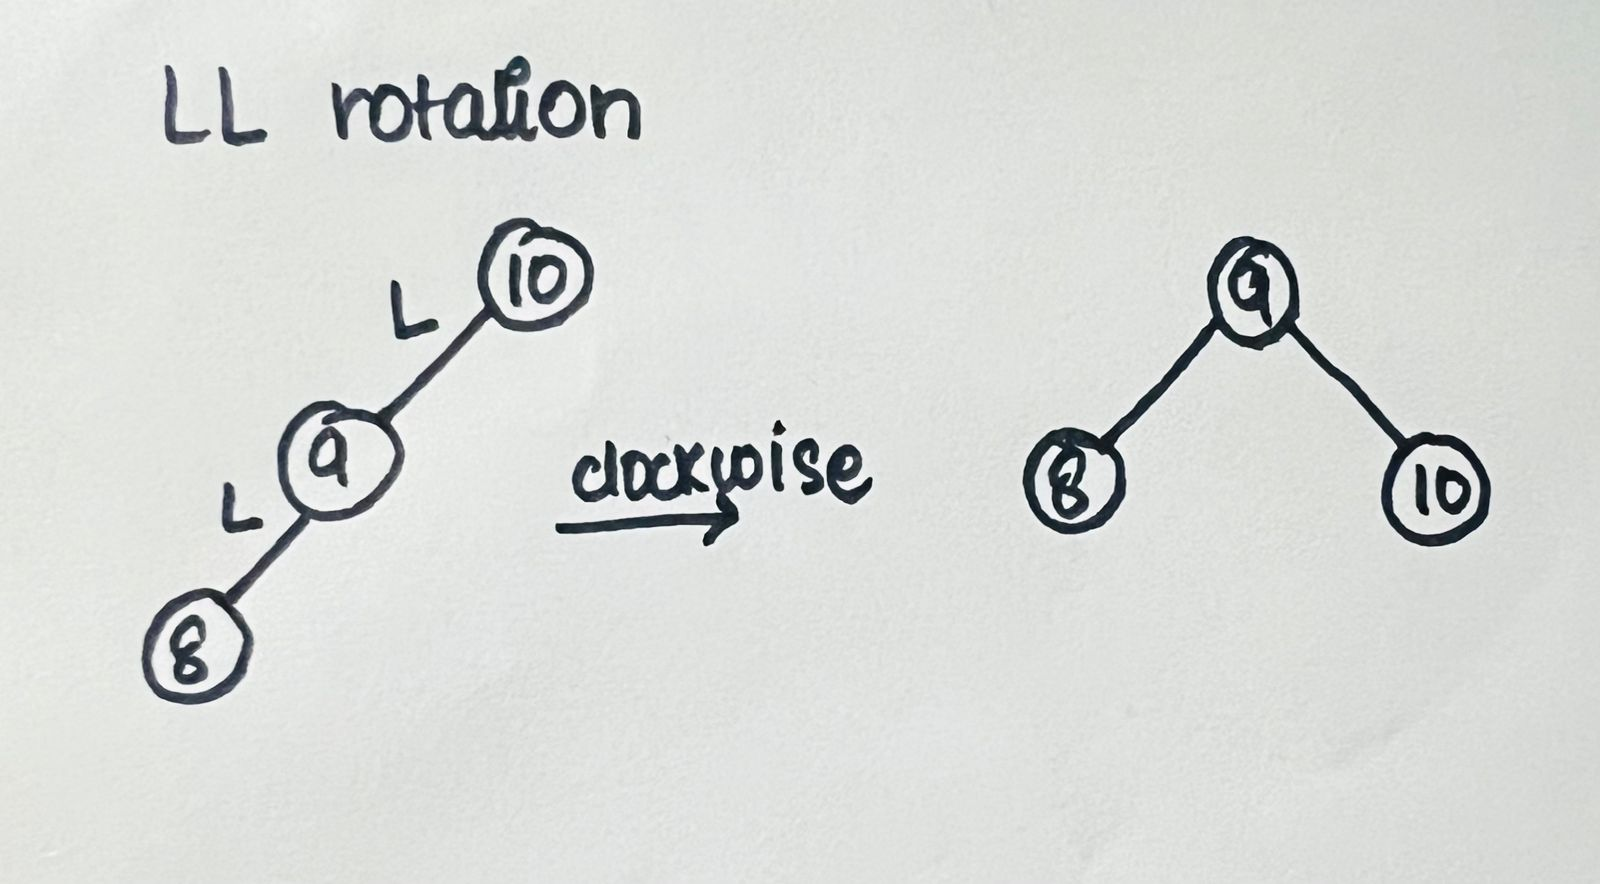 LL rotation
L
10
9
L
8
clockwise
9
8
10